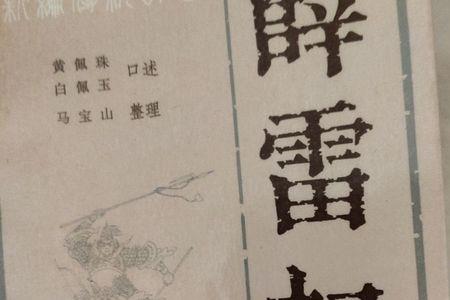 黄佩珠 口述
白佩玉
马宝山 整理
薛雷